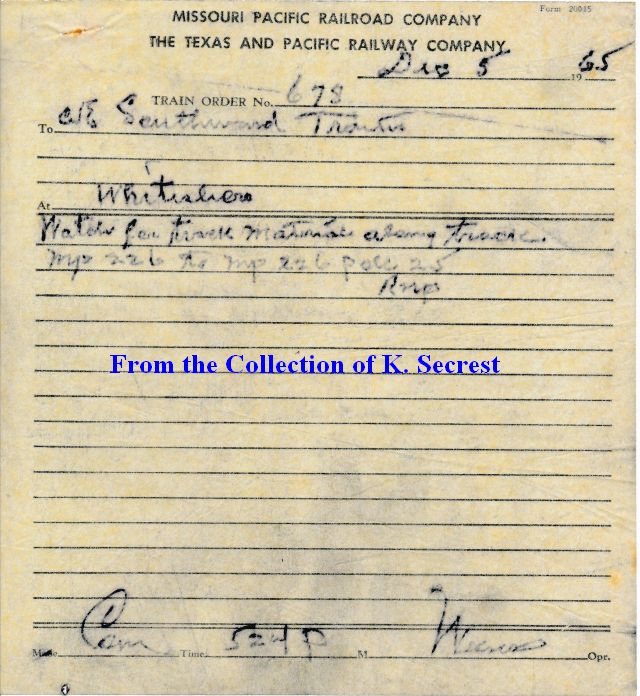 Form 20035
MISSOURI PACIFIC RAILROAD COMPANY
THE TEXAS AND PACIFIC RAILWAY COMPANY
Dec 5 1965
TRAIN ORDER No. 678
To C&E Southward Trains
At Whitesboro
Watch for track material along track.
mp 226 to mp 226 pole 25
From the Collection of K. Secrest
Made Com Time 524 P M Opr.